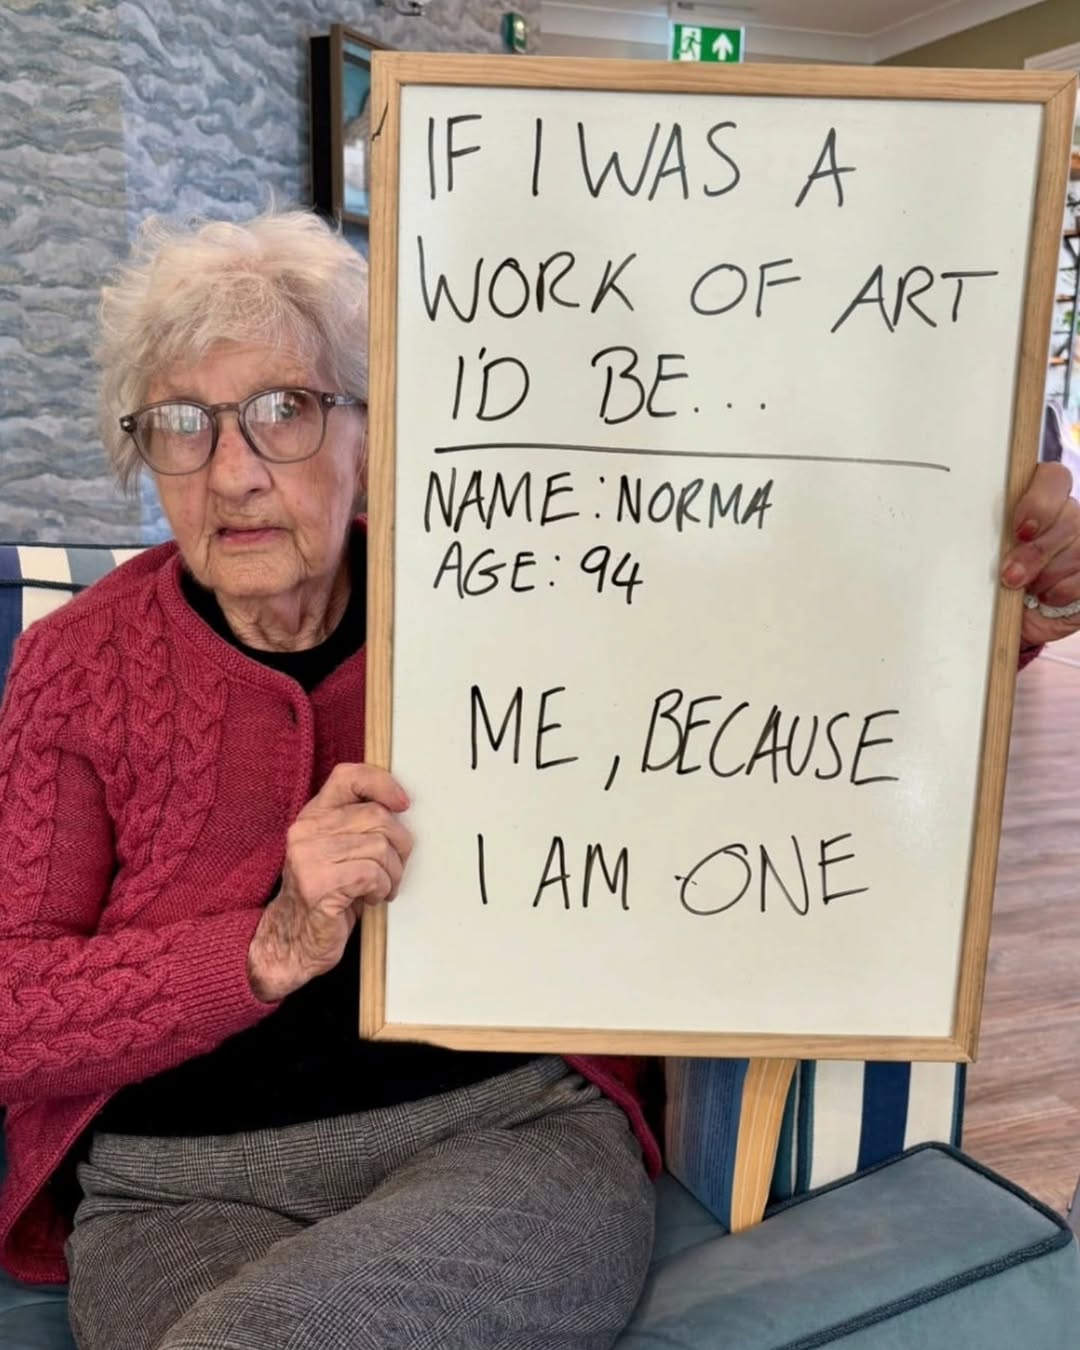 IF I WAS A
WORK OF ART
I'D BE...
NAME: NORMA
AGE: 94
ME, BECAUSE
I AM ONE